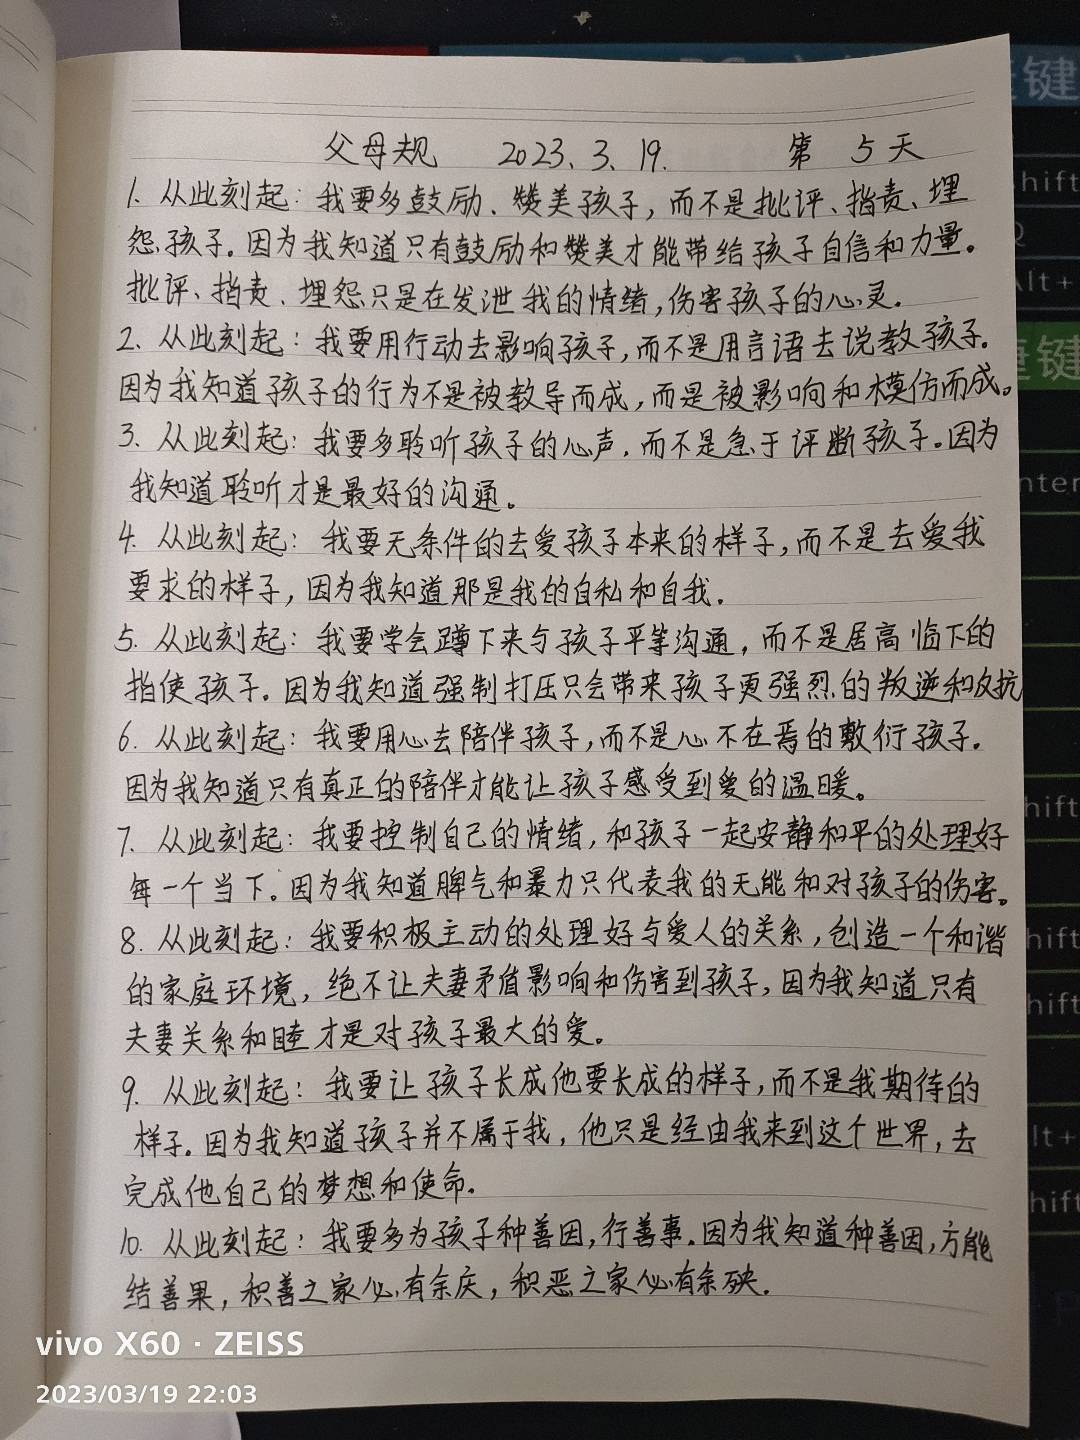 父母规 2023.3.19. 第 5 天
1. 从此刻起：我要多鼓励、赞美孩子，而不是批评、指责、埋
怨孩子。因为我知道只有鼓励和赞美才能带给孩子自信和力量。
批评、指责、埋怨只是在发泄我的情绪，伤害孩子的心灵.
2. 从此刻起：我要用行动去影响孩子，而不是用言语去说教孩子.
因为我知道孩子的行为不是被教导而成，而是被影响和模仿而成。
3. 从此刻起：我要多聆听孩子的心声，而不是急于评断孩子。因为
我知道聆听才是最好的沟通。
4. 从此刻起：我要无条件的去爱孩子本来的样子，而不是去爱我
要求的样子，因为我知道那是我的自私和自我.
5. 从此刻起：我要学会蹲下来与孩子平等沟通，而不是居高临下的
指使孩子。因为我知道强制打压只会带来孩子更强烈的叛逆和反抗
6. 从此刻起：我要用心去陪伴孩子，而不是心不在焉的敷衍孩子.
因为我知道只有真正的陪伴才能让孩子感受到爱的温暖。
7. 从此刻起：我要控制自己的情绪，和孩子一起安静和平的处理好
每一个当下。因为我知道脾气和暴力只代表我的无能和对孩子的伤害。
8. 从此刻起：我要积极主动的处理好与爱人的关系，创造一个和谐
的家庭环境，绝不让夫妻矛盾影响和伤害到孩子，因为我知道只有
夫妻关系和睦才是对孩子最大的爱。
9. 从此刻起：我要让孩子长成他要长成的样子，而不是我期待的
样子。因为我知道孩子并不属于我，他只是经由我来到这个世界，去
完成他自己的梦想和使命.
10. 从此刻起：我要多为孩子种善因，行善事.因为我知道种善因，方能
结善果，积善之家必有余庆，积恶之家必有余殃.
vivo X60 · ZEISS
2023/03/19 22:03
键
shift
Q
Alt+
键
nter
shift
shift
shift
lt+
shift